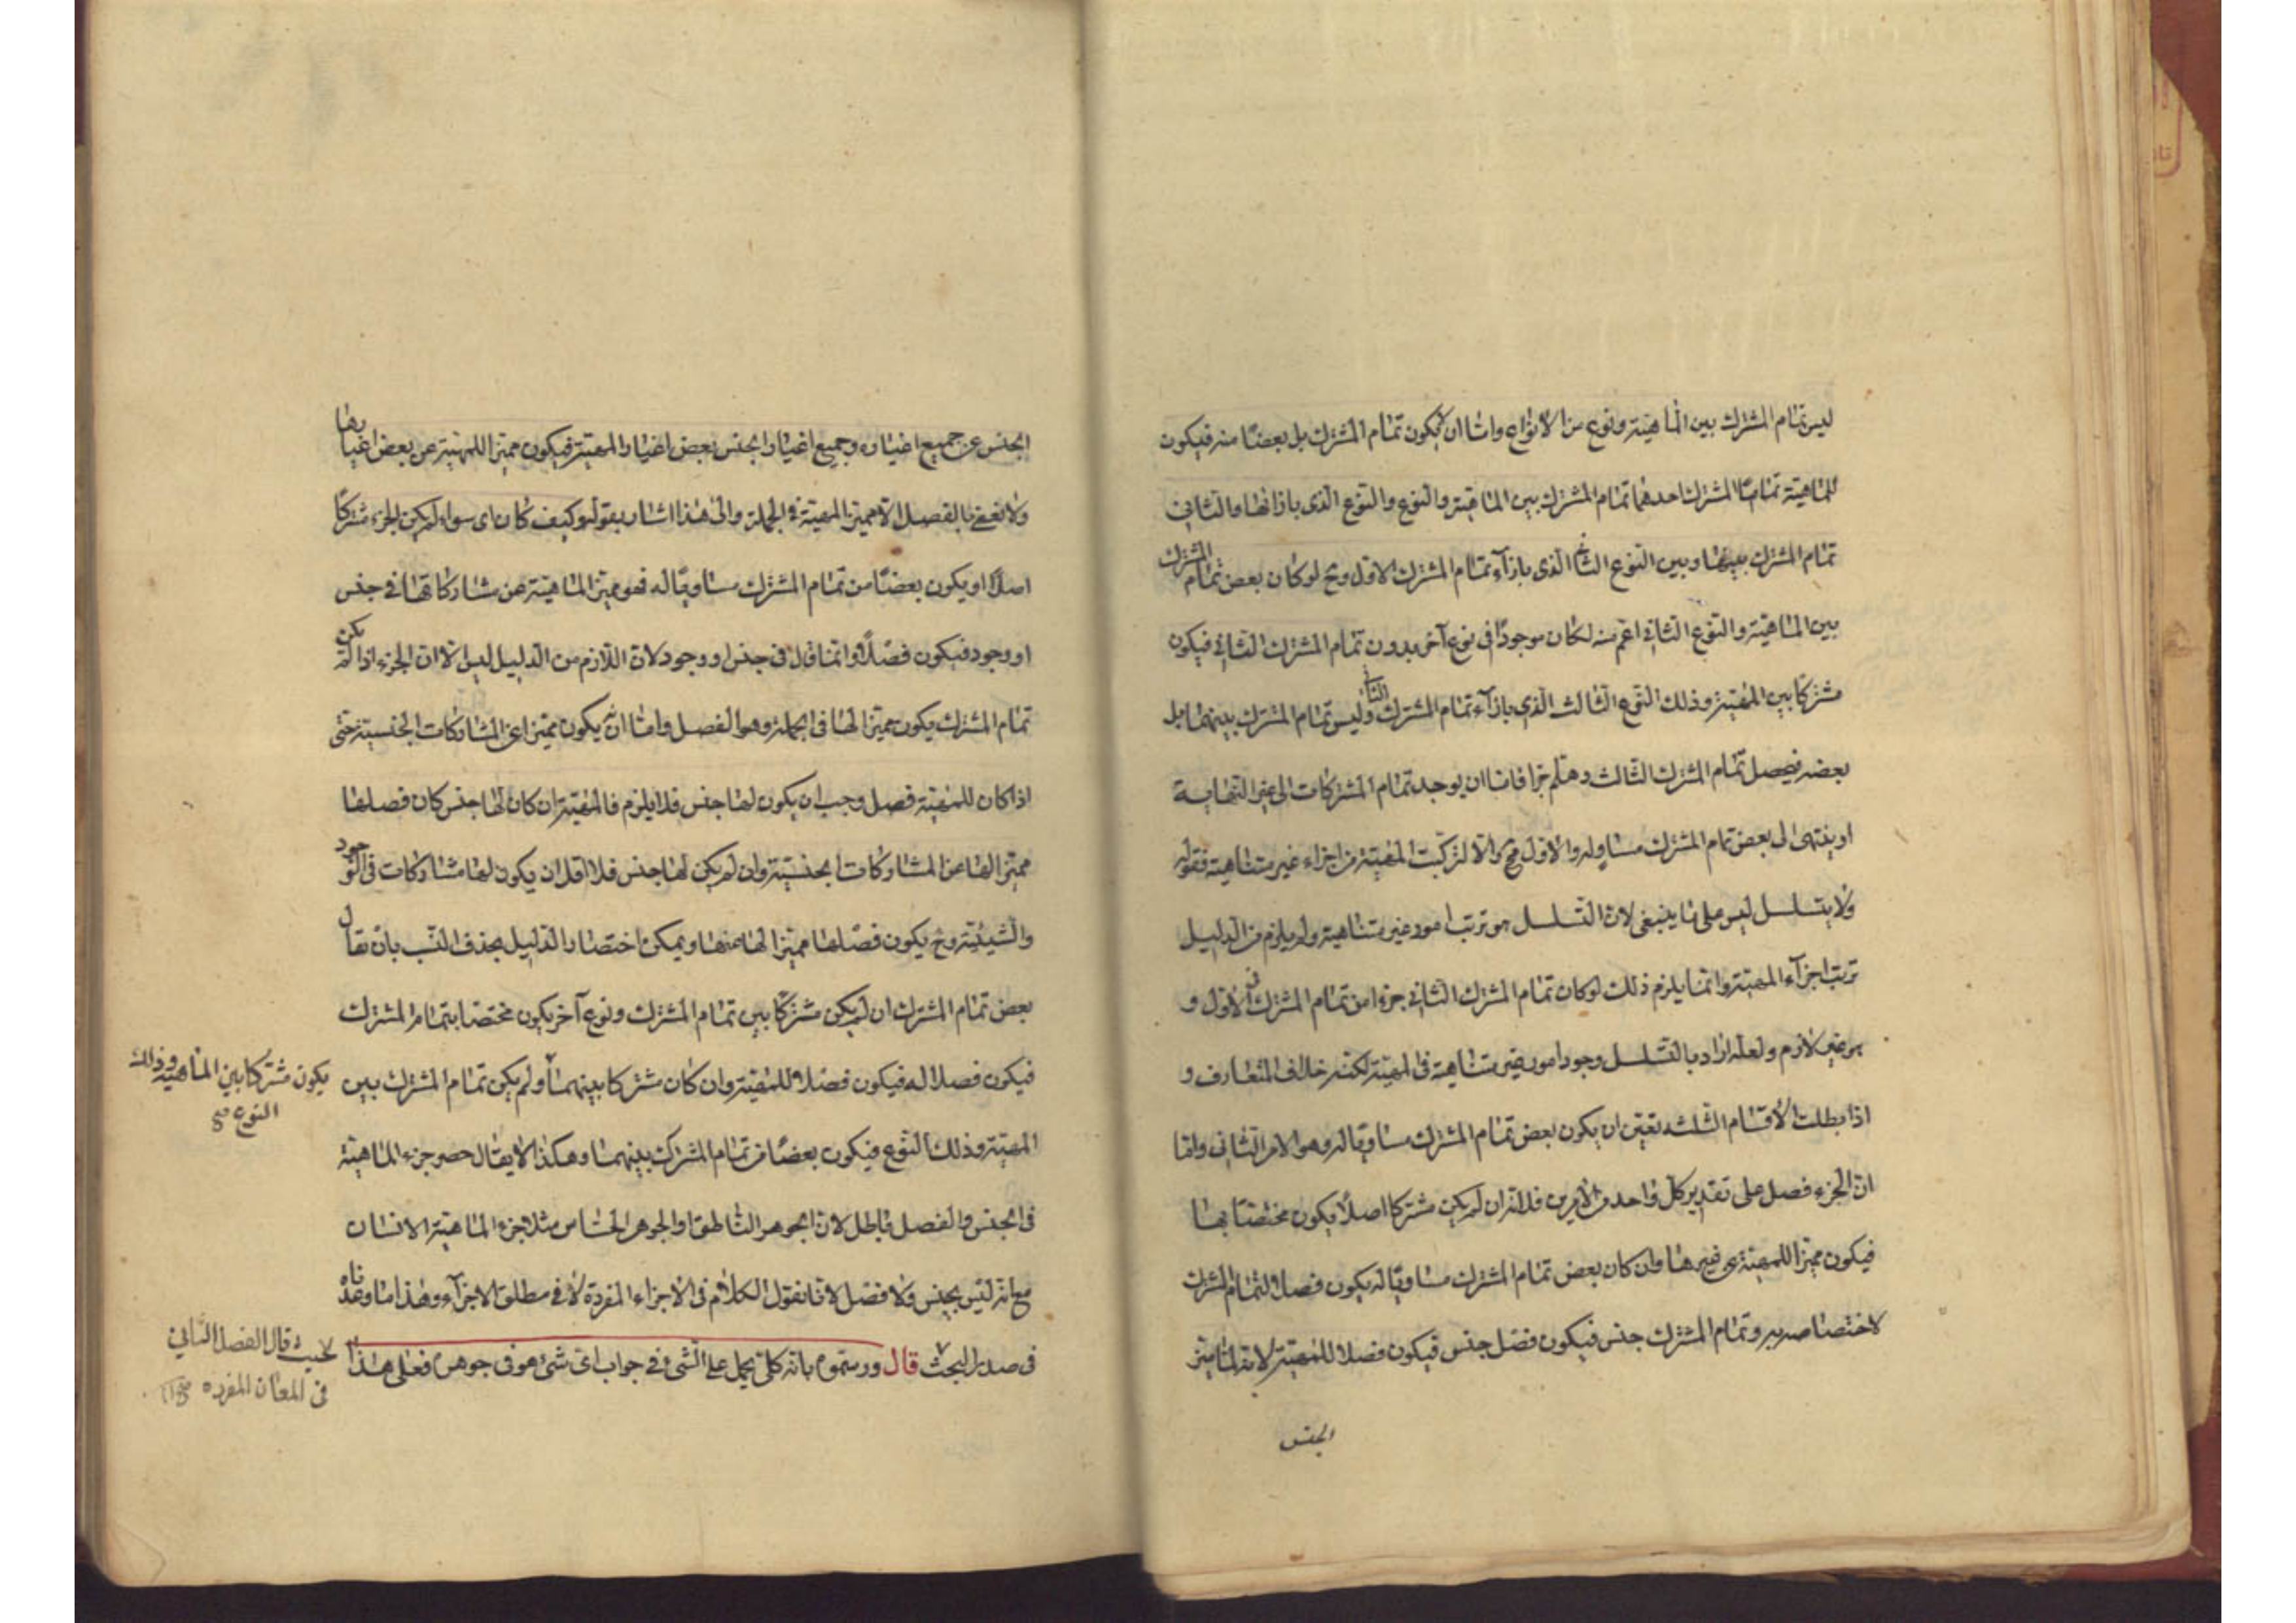 ليس تمام المشترك بين الماهية ونوع من الأنواع واما ان لا يكون تمام المشترك بل بعضا منه فيكون
للماهية تماما المشترك احدهما تمام المشترك بين الماهية والنوع والنوع الذى بازائها والثانى
تمام المشترك بينها وبين النوع الثانى الذى بازآء تمام المشترك الاول وح لو كان بعض تمام المشترك
بين الماهية والنوع الثانى اعم منه لكان موجودا فى نوع آخر بدون تمام المشترك الثانى فيكون
مشتركا بين المهية وذلك النوع الثالث الذى بازآء تمام المشترك الثانى وليس تمام المشترك بينهما بل
بعضه فيحصل تمام المشترك الثالث وهلم جرا فاما ان يوجد تمام المشتركات الى غير النهاية
او ينتهى الى بعض تمام المشترك مساو له والاول مح والا لتركبت المهية من اجزاء غير متناهية فقوله
ولا يتسلسل ليس على ما ينبغى لان التسلسل هو ترتب امور غير متناهية ولم يلزم من الدليل
ترتب اجزآء المهية وانما يلزم ذلك لو كان تمام المشترك الثانى جزءا من تمام المشترك الاول و
هو غير لازم ولعله اراد بالتسلسل وجود امور غير متناهية فى المهية لكنه خلاف المتعارف و
اذا بطلت الأقسام الثلثه تعين ان يكون بعض تمام المشترك مساويا له وهو الامر الثانى واما
ان الجزء فصل على تقدير كل واحد من الأمرين فلانه ان لم يكن مشتركا اصلا يكون مختصا بها
فيكون مميزا للمهية عن غيرها وان كان بعض تمام المشترك مساويا له يكون فصلا لتمام المشترك
لاختصاصه به وتمام المشترك جنس فيكون فصل جنس فيكون فصلا للمهية لانه لما ميز
الجنس
الجنس عن جميع اغياره وجميع اغيار الجنس بعض اغيار المهية فيكون مميزا للمهية عن بعض اغيارها
ولا نعنى بالفصل الا مميز المهية فى الجملة والى هذا اشار بقوله وكيف كان اى سواء لم يكن الجزء مشتركا
اصلا او يكون بعضا من تمام المشترك مساويا له فهو مميز الماهية عن مشاركاتها فى جنس
او وجود فيكون فصلا وانما قال فى جنس او وجود لان اللازم من الدليل ليس الا ان الجزء اذا لم يكن
تمام المشترك يكون مميزا لها فى الجملة وهو الفصل واما انه يكون مميزا عن المشاركات الجنسية حتى
اذا كان للمهية فصل وجب ان يكون لها جنس فلا يلزم فالمهية ان كان لها جنس كان فصلها
مميزا لها عن المشاركات الجنسية وان لم يكن لها جنس فلا اقل ان يكون لها مشاركات فى الوجود
والشيئية وح يكون فصلها مميزا لها عنها ويمكن اختصار الدليل بحذف النسب بان يقال
بعض تمام المشترك ان لم يكن مشتركا بين تمام المشترك ونوع آخر يكون مختصا بتمام المشترك
فيكون فصلا له فيكون فصلا للمهية وان كان مشتركا بينهما ولم يكن تمام المشترك بين
يكون مشتركا بين الماهية وذلك
النوع صح
المهية وذلك النوع فيكون بعضا من تمام المشترك بينهما وهكذا لا يقال حصر جزء الماهية
فى الجنس والفصل باطل لان الجوهر الناطق او الجوهر الحساس مثلا جزء الماهية الانسان
مع انه ليس بجنس ولا فصل لانا نقول الكلام فى الأجزاء المفردة لا فى مطلق الاجزآء وهذا ما وعدناه
فى صدر البحث قال ورسموه بانه كلى يحمل على الشئ فى جواب اى شئ هو فى جوهره فعلى هذا
قال الفصل الثانى
فى المعانى المفرده صح